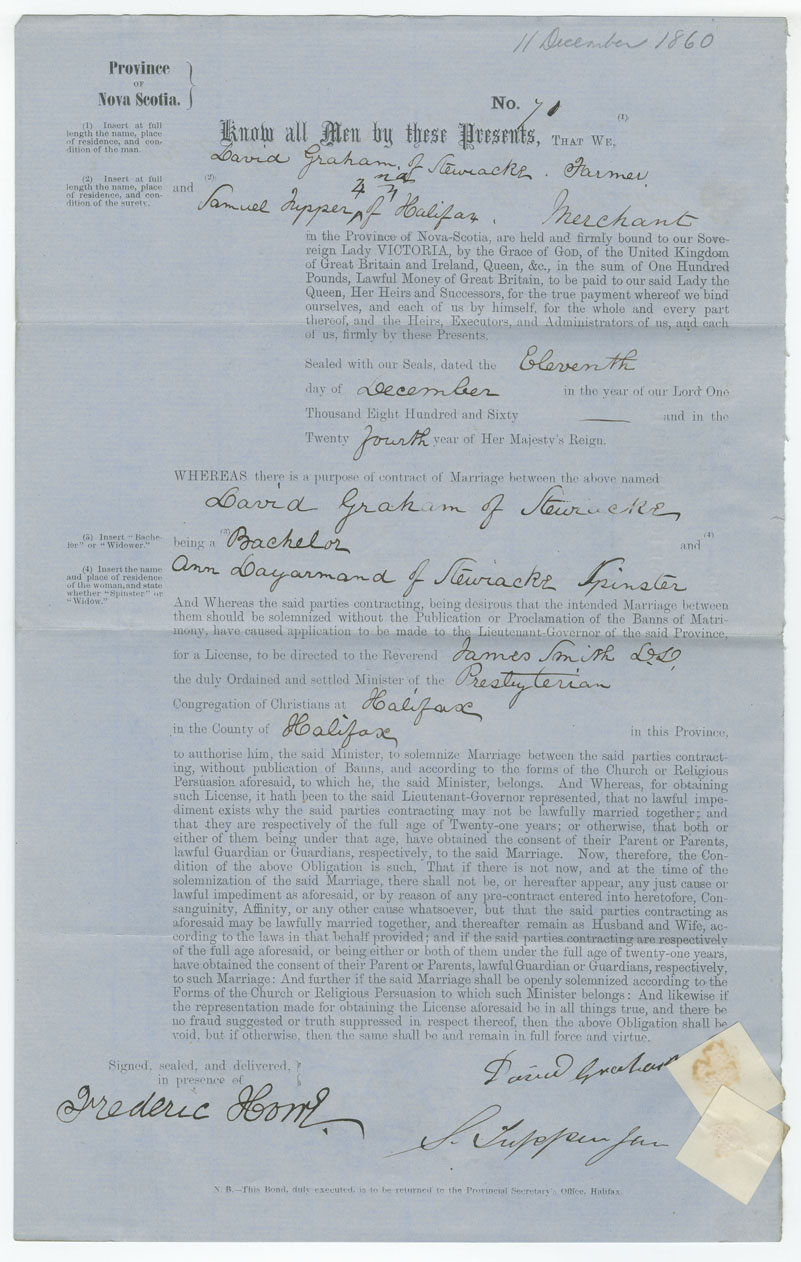 11 December 1860
Province
OF
Nova Scotia.
No. 71
(1) Insert at full
length the name, place
of residence, and con-
dition of the man.
(1)
Know all Men by these Presents, THAT WE,
David Graham, of Stewiacke. Farmer,
(2) Insert at full
length the name, place
of residence, and con-
dition of the surety.
and (2)
Samuel Tupper, of Halifax. Merchant
in the Province of Nova-Scotia, are held and firmly bound to our Sove-
reign Lady VICTORIA, by the Grace of GOD, of the United Kingdom
of Great Britain and Ireland, Queen, &c., in the sum of One Hundred
Pounds, Lawful Money of Great Britain, to be paid to our said Lady the
Queen, Her Heirs and Successors, for the true payment whereof we bind
ourselves, and each of us by himself, for the whole and every part
thereof, and the Heirs, Executors, and Administrators of us, and each
of us, firmly by these Presents.
Sealed with our Seals, dated the Eleventh
day of December in the year of our Lord One
Thousand Eight Hundred and Sixty —— and in the
Twenty fourth year of Her Majesty's Reign.
WHEREAS there is a purpose of contract of Marriage between the above named
David Graham of Stewiacke
(3) Insert "Bache-
lor" or "Widower."
being a (3) Bachelor and (4)
(4) Insert the name
and place of residence
of the woman, and state
whether "Spinster" or
"Widow."
Ann Dayarmand of Stewiacke Spinster
And Whereas the said parties contracting, being desirous that the intended Marriage between
them should be solemnized without the Publication or Proclamation of the Banns of Matri-
mony, have caused application to be made to the Lieutenant-Governor of the said Province,
for a License, to be directed to the Reverend James Smith D.D.
the duly Ordained and settled Minister of the Presbyterian
Congregation of Christians at Halifax
in the County of Halifax in this Province,
to authorise him, the said Minister, to solemnize Marriage between the said parties contract-
ing, without publication of Banns, and according to the forms of the Church or Religious
Persuasion aforesaid, to which he, the said Minister, belongs. And Whereas, for obtaining
such License, it hath been to the said Lieutenant-Governor represented, that no lawful impe-
diment exists why the said parties contracting may not be lawfully married together; and
that they are respectively of the full age of Twenty-one years; or otherwise, that both or
either of them being under that age, have obtained the consent of their Parent or Parents,
lawful Guardian or Guardians, respectively, to the said Marriage. Now, therefore, the Con-
dition of the above Obligation is such, That if there is not now, and at the time of the
solemnization of the said Marriage, there shall not be, or hereafter appear, any just cause or
lawful impediment as aforesaid, or by reason of any pre-contract entered into heretofore, Con-
sanguinity, Affinity, or any other cause whatsoever, but that the said parties contracting as
aforesaid may be lawfully married together, and thereafter remain as Husband and Wife, ac-
cording to the laws in that behalf provided; and if the said parties contracting are respectively
of the full age aforesaid, or being either or both of them under the full age of twenty-one years,
have obtained the consent of their Parent or Parents, lawful Guardian or Guardians, respectively,
to such Marriage: And further if the said Marriage shall be openly solemnized according to the
Forms of the Church or Religious Persuasion to which such Minister belongs: And likewise if
the representation made for obtaining the License aforesaid be in all things true, and there be
no fraud suggested or truth suppressed in respect thereof, then the above Obligation shall be
void, but if otherwise, then the same shall be and remain in full force and virtue.
Signed, sealed, and delivered,
in presence of
David Graham
Frederic
S. Tupper Jun
N. B.—This Bond, duly executed, is to be returned to the Provincial Secretary's Office, Halifax.